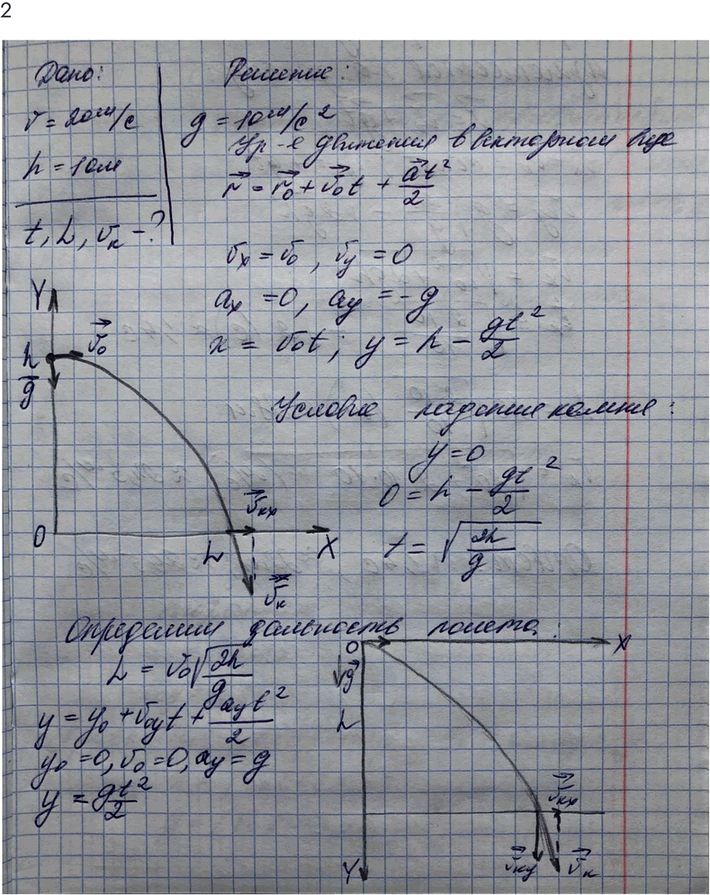 2
Дано:
v = 20 м/с
h = 10 м
t, L, vк - ?
Решение:
g = 10 м/с²
Ур-е движения в векторном виде
r⃗ = r⃗₀ + v⃗₀t + a⃗t²/2
vx = v₀, vy = 0
ax = 0, ay = -g
x = v₀t; y = h - gt²/2
Y
v⃗₀
h
g⃗
0
L
v⃗кх
X
v⃗к
Условие падения камня:
y = 0
0 = h - gt²/2
t = √(2h/g)
Определим дальность полета:
L = v₀√(2h/g)
y = y₀ + v₀yt + ayt²/2
y₀ = 0, v₀ = 0, ay = g
y = gt²/2
0
X
g⃗
v⃗кх
v⃗ку
v⃗к
Y